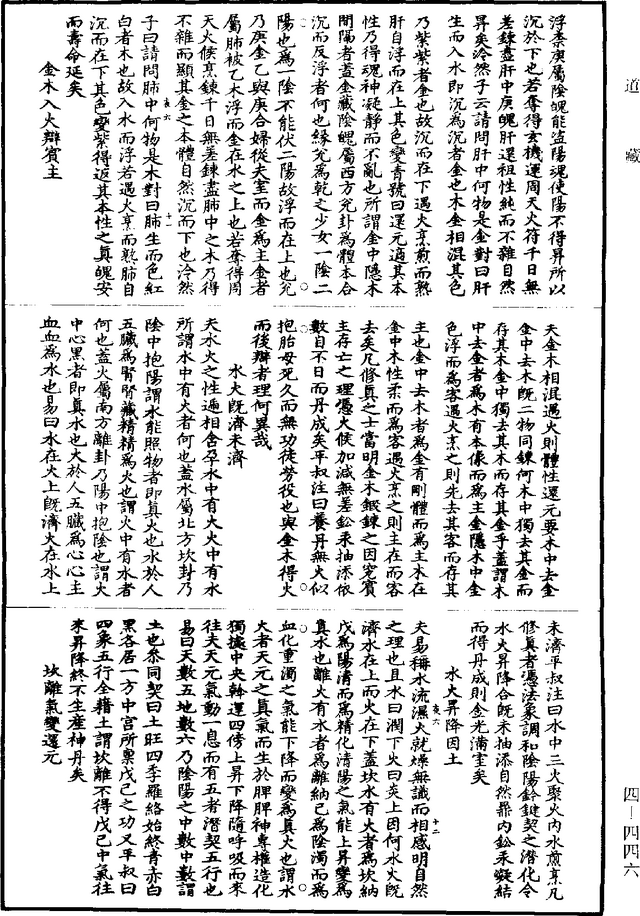 道藏
浮柰庚屬陰魄能盜陽魂使陽不得昇所以
沉於下也若奪得玄機運周天火符千日無
差鍊盡肝中庚魄肝還祖性純而不雜自然
昇矣泠然子云請問肝中何物是金對曰肝
生而入水即沉為沉者金也木金相混其色
乃紫紫者金也故沉而在下遇火烹煎而熟
肝自浮而在上其色變青號曰還元過其本
性乃得魂神凝靜而不亂也所謂金中隱木
間隔者蓋金藏陰魄屬西方兌卦為體本合
沉而反浮者何也緣兌為乾之少女一陰二
陽也為一陰不能伏二陽故浮而在上也兌
乃庚金乙與庚合婦從夫室而金為主金者
屬肺被乙木浮而金在水之上也若奪得周
天火候烹鍊千日無差鍊盡肺中之木乃得
不雜而顯其金之本體自然沉而下也泠然
子曰請問肺中何物是木對曰肺生而色紅
白者木也故入水而浮若遇火烹而熟肺自
沉而在下其色變紫得返其本性之真魄安
而壽命延矣
金木入火辯賓主
夫金木相混遇火則體性還元要木中去金
金中去木既二物同鍊何木中獨去其金而
存其木金中獨去其木而存其金乎蓋謂木
中去金者為木有本像而為主金隱木中金
色浮而為客遇火烹之則先去其客而存其
主也金中去木者為金有剛體而為主木在
金中木性柔而為客遇火烹之則主在而客
去矣凡修真之士當明金木鍛鍊之因究賓
主存亡之理憑火候加減無差鉛汞抽添依
數自不日而丹成矣平叔注曰養丹無火似
抱胎母死久而無功徒勞役也與金木得火
而後辯者理何異哉
水火既濟未濟
夫水火之性遞相含孕水中有火火中有水
所謂水中有火者何也蓋水屬北方坎卦乃
陰中抱陽謂水能照物者即真火也水於人
五臟為腎腎藏精精為火也謂火中有水者
何也蓋火屬南方離卦乃陽中抱陰也謂火
中心黑者即真水也火於人五臟為心心主
血血為水也易曰水在火上既濟火在水上
未濟平叔注曰水中三火聚火內水煎烹凡
修真者憑法象調和陰陽鈐鍵契之潛化令
水火昇降合既未抽添自然鼎內鉛汞凝結
而得丹成則金光滿室矣
水火昇降因土
夫易稱水流濕火就燥無識而相感明自然
之理也且水曰潤下火曰炎上因何水火既
濟水在上而火在下蓋坎水有火者為坎納
戊為陽清而為精化清陽之氣能上昇變為
真水也離火有水者為離納己為陰濁而為
血化重濁之氣能下降而變為真火也謂水
火者天元之真氣而生於脾脾神專權造化
獨據中央斡運四傍上昇下降隨呼吸而來
往夫天元氣動一息而有五者潛契五行也
易曰天數五地數六乃陰陽之中數中數謂
土也叅同契曰土旺四季羅絡始終青赤白
黑各居一方中宮所稟戊己之功又平叔曰
四象五行全藉土謂坎離不得戊己中氣往
來昇降終不生產神丹矣
坎離氣變還元
四—四四六